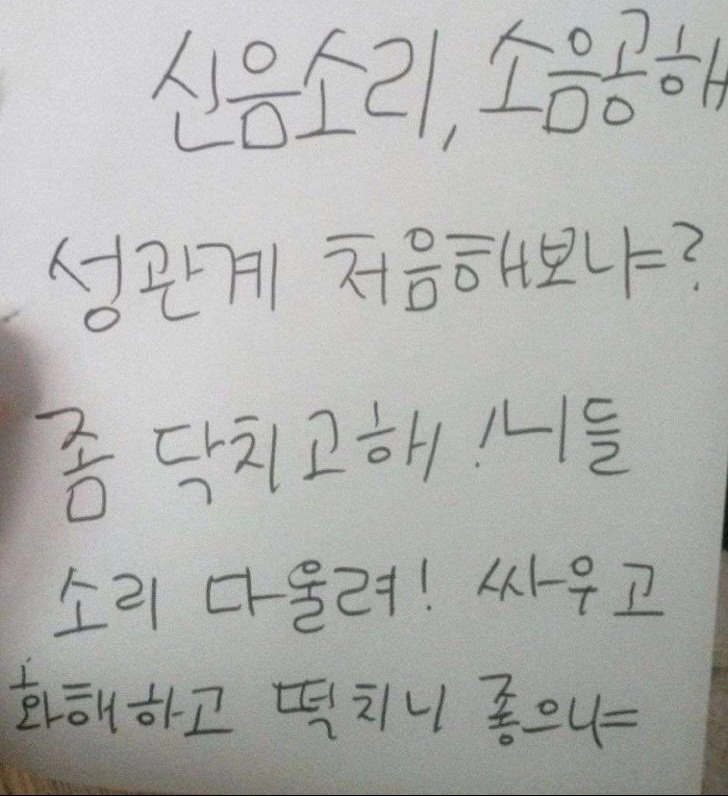 신음소리, 소음공해
성관계 처음해보냐?
좀 닥치고해! 니들
소리 다울려! 싸우고
화해하고 떡치니 좋으냐